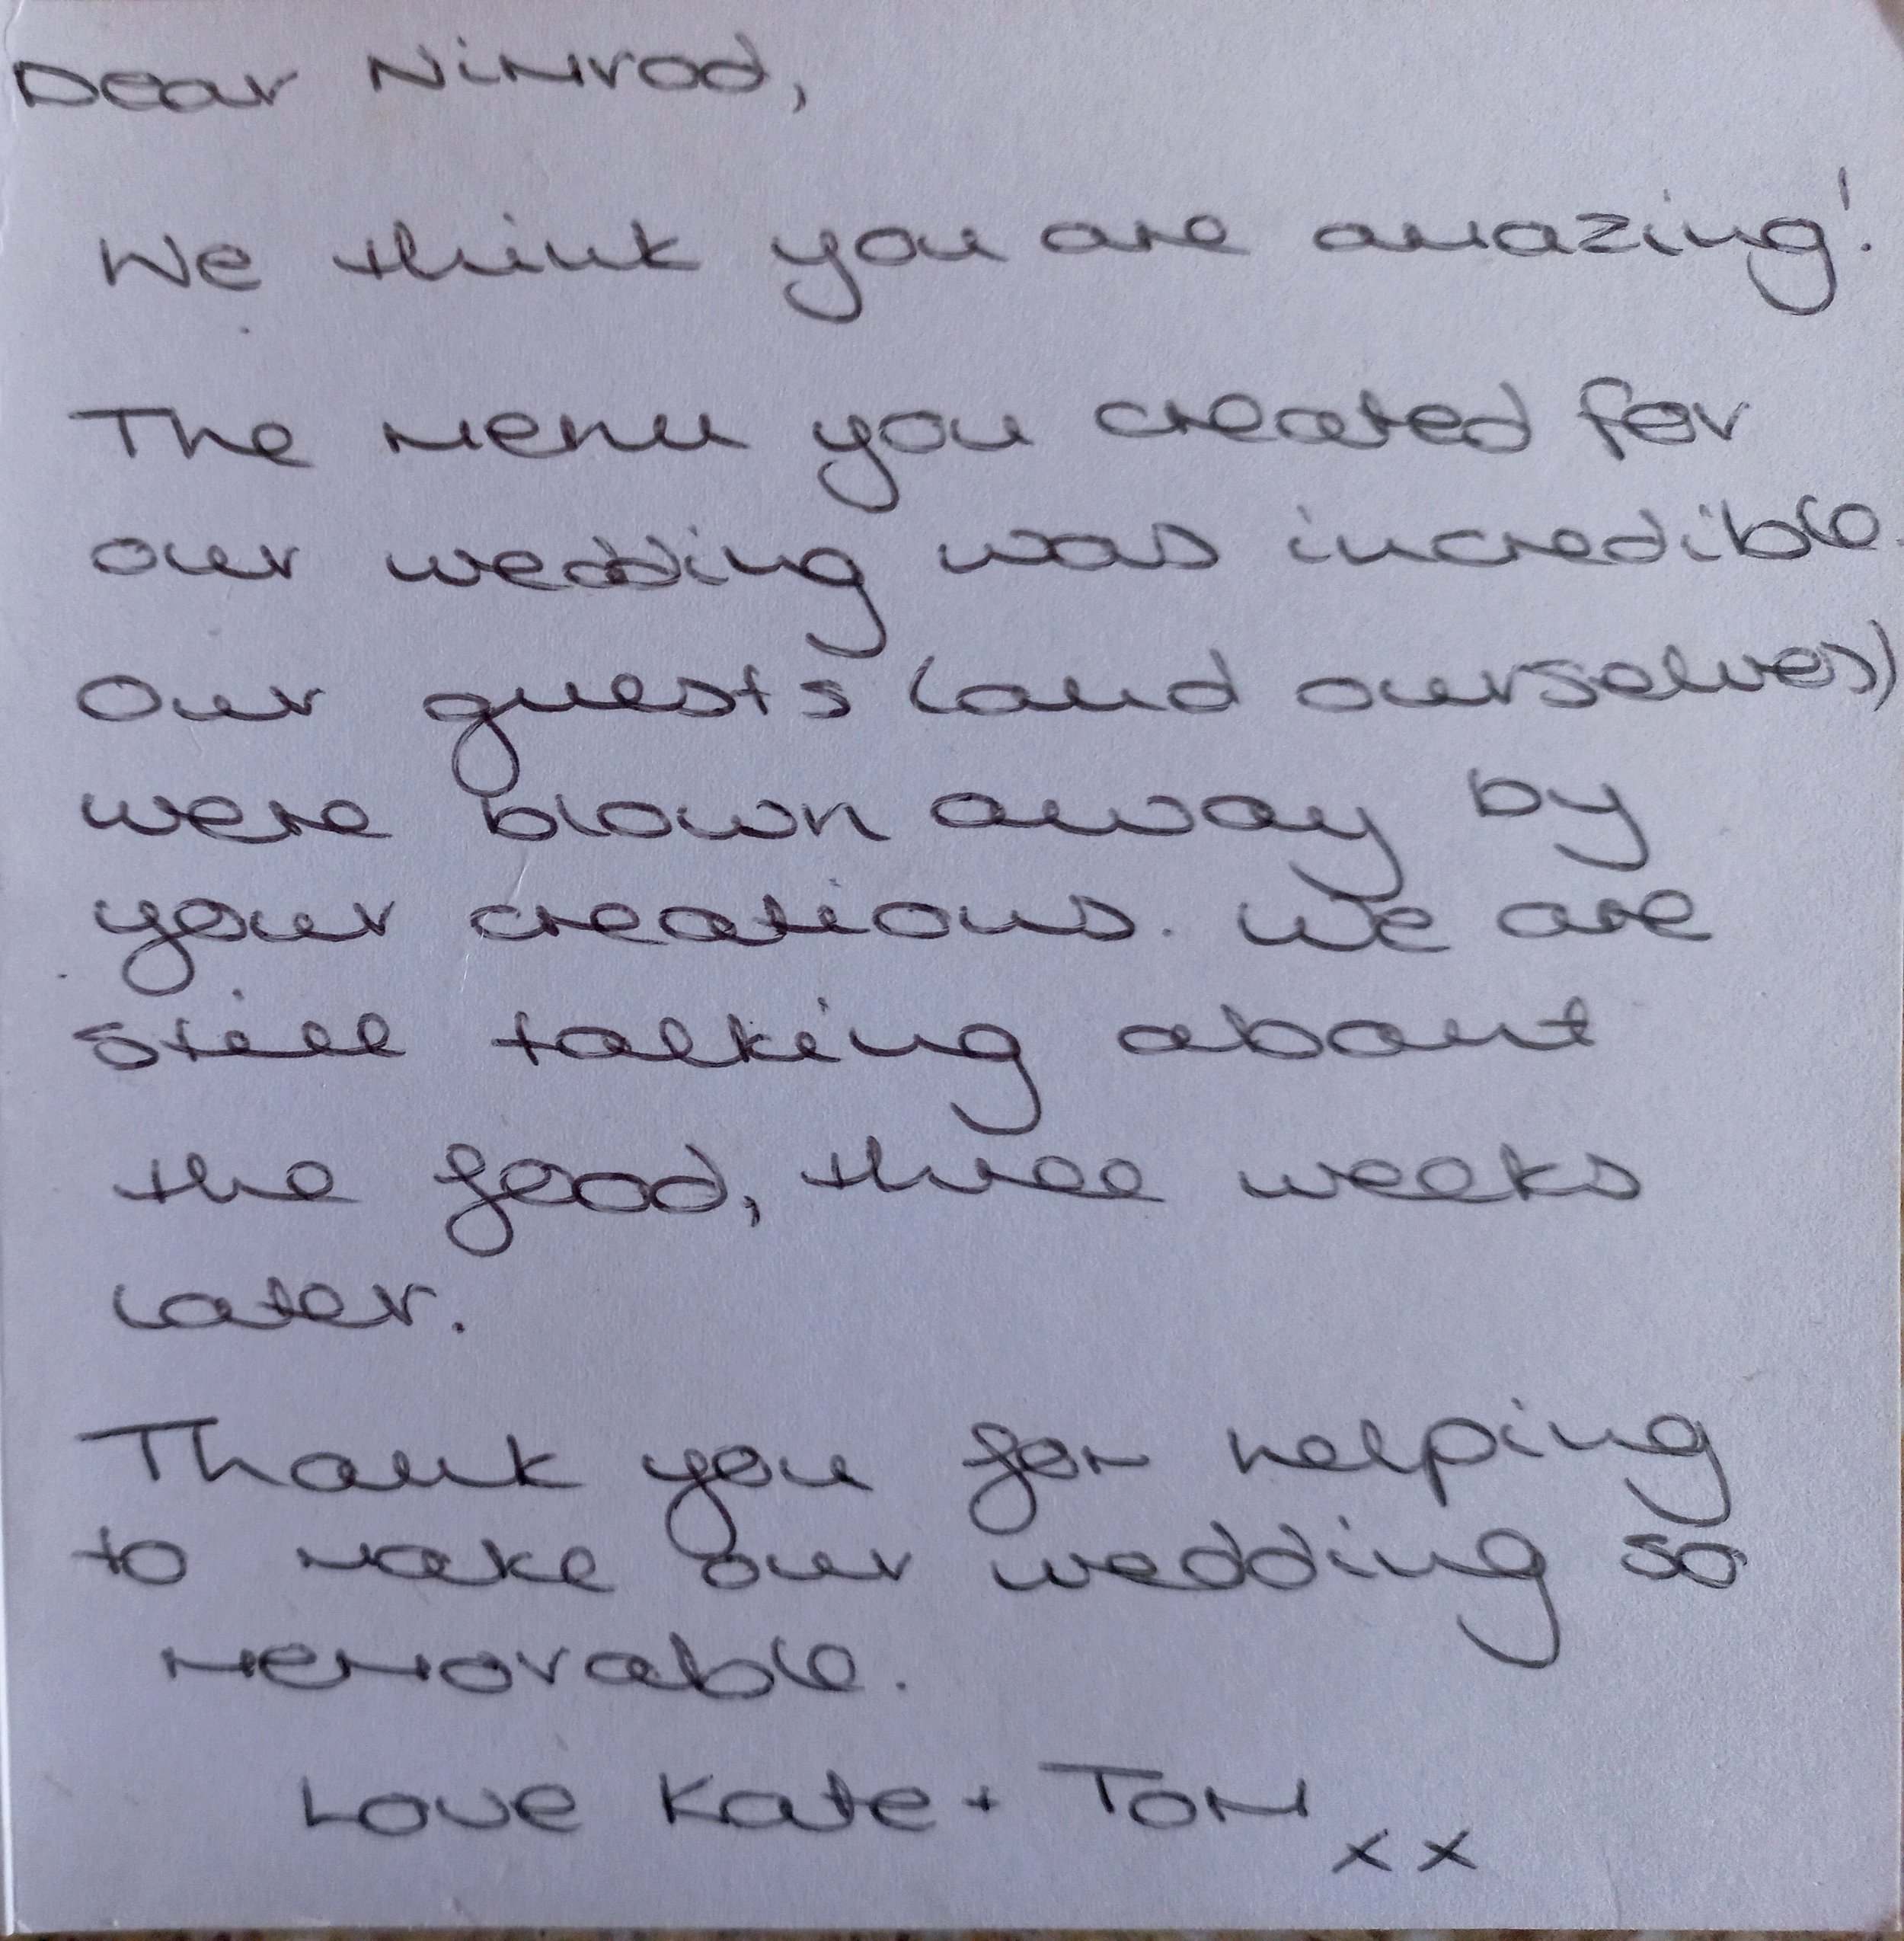 Dear Nimrod,
We think you are amazing!
The menu you created for
our wedding was incredible.
Our guests (and ourselves)
were blown away by
your creations. We are
still talking about
the food, three weeks
later.
Thank you for helping
to make our wedding so
memorable.
Love Kate + Tom
xx